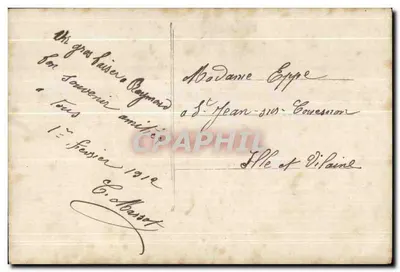 Un gros baiser a Raymond
bon souvenir amitiés
a tous
1er février 1912
Madame Eppe
a St Jean-sur-Couesnon
Ille et Vilaine
CPRPHIL